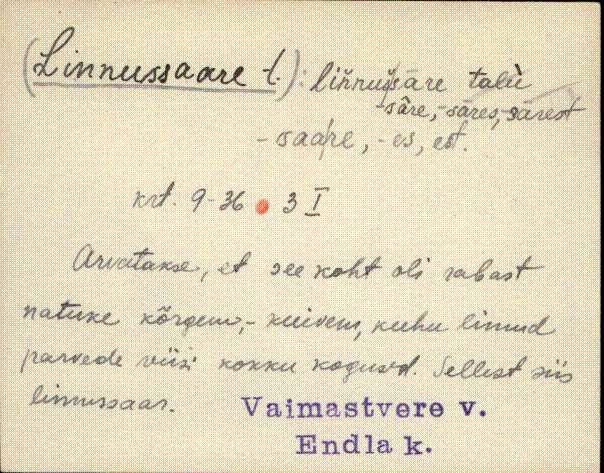 (Linnussaare t.): liňnus̆sāre talù
-sâre, -sāres, -sārest
-saare, -es, est.
krt. 9-36 3 I
Arvatakse, et see koht oli rabast
natuke kõrgem, - kuivem, kuhu linnud
parvede viisi kokku kogusid. Sellest siis
linnussaar.
Vaimastvere v.
Endla k.